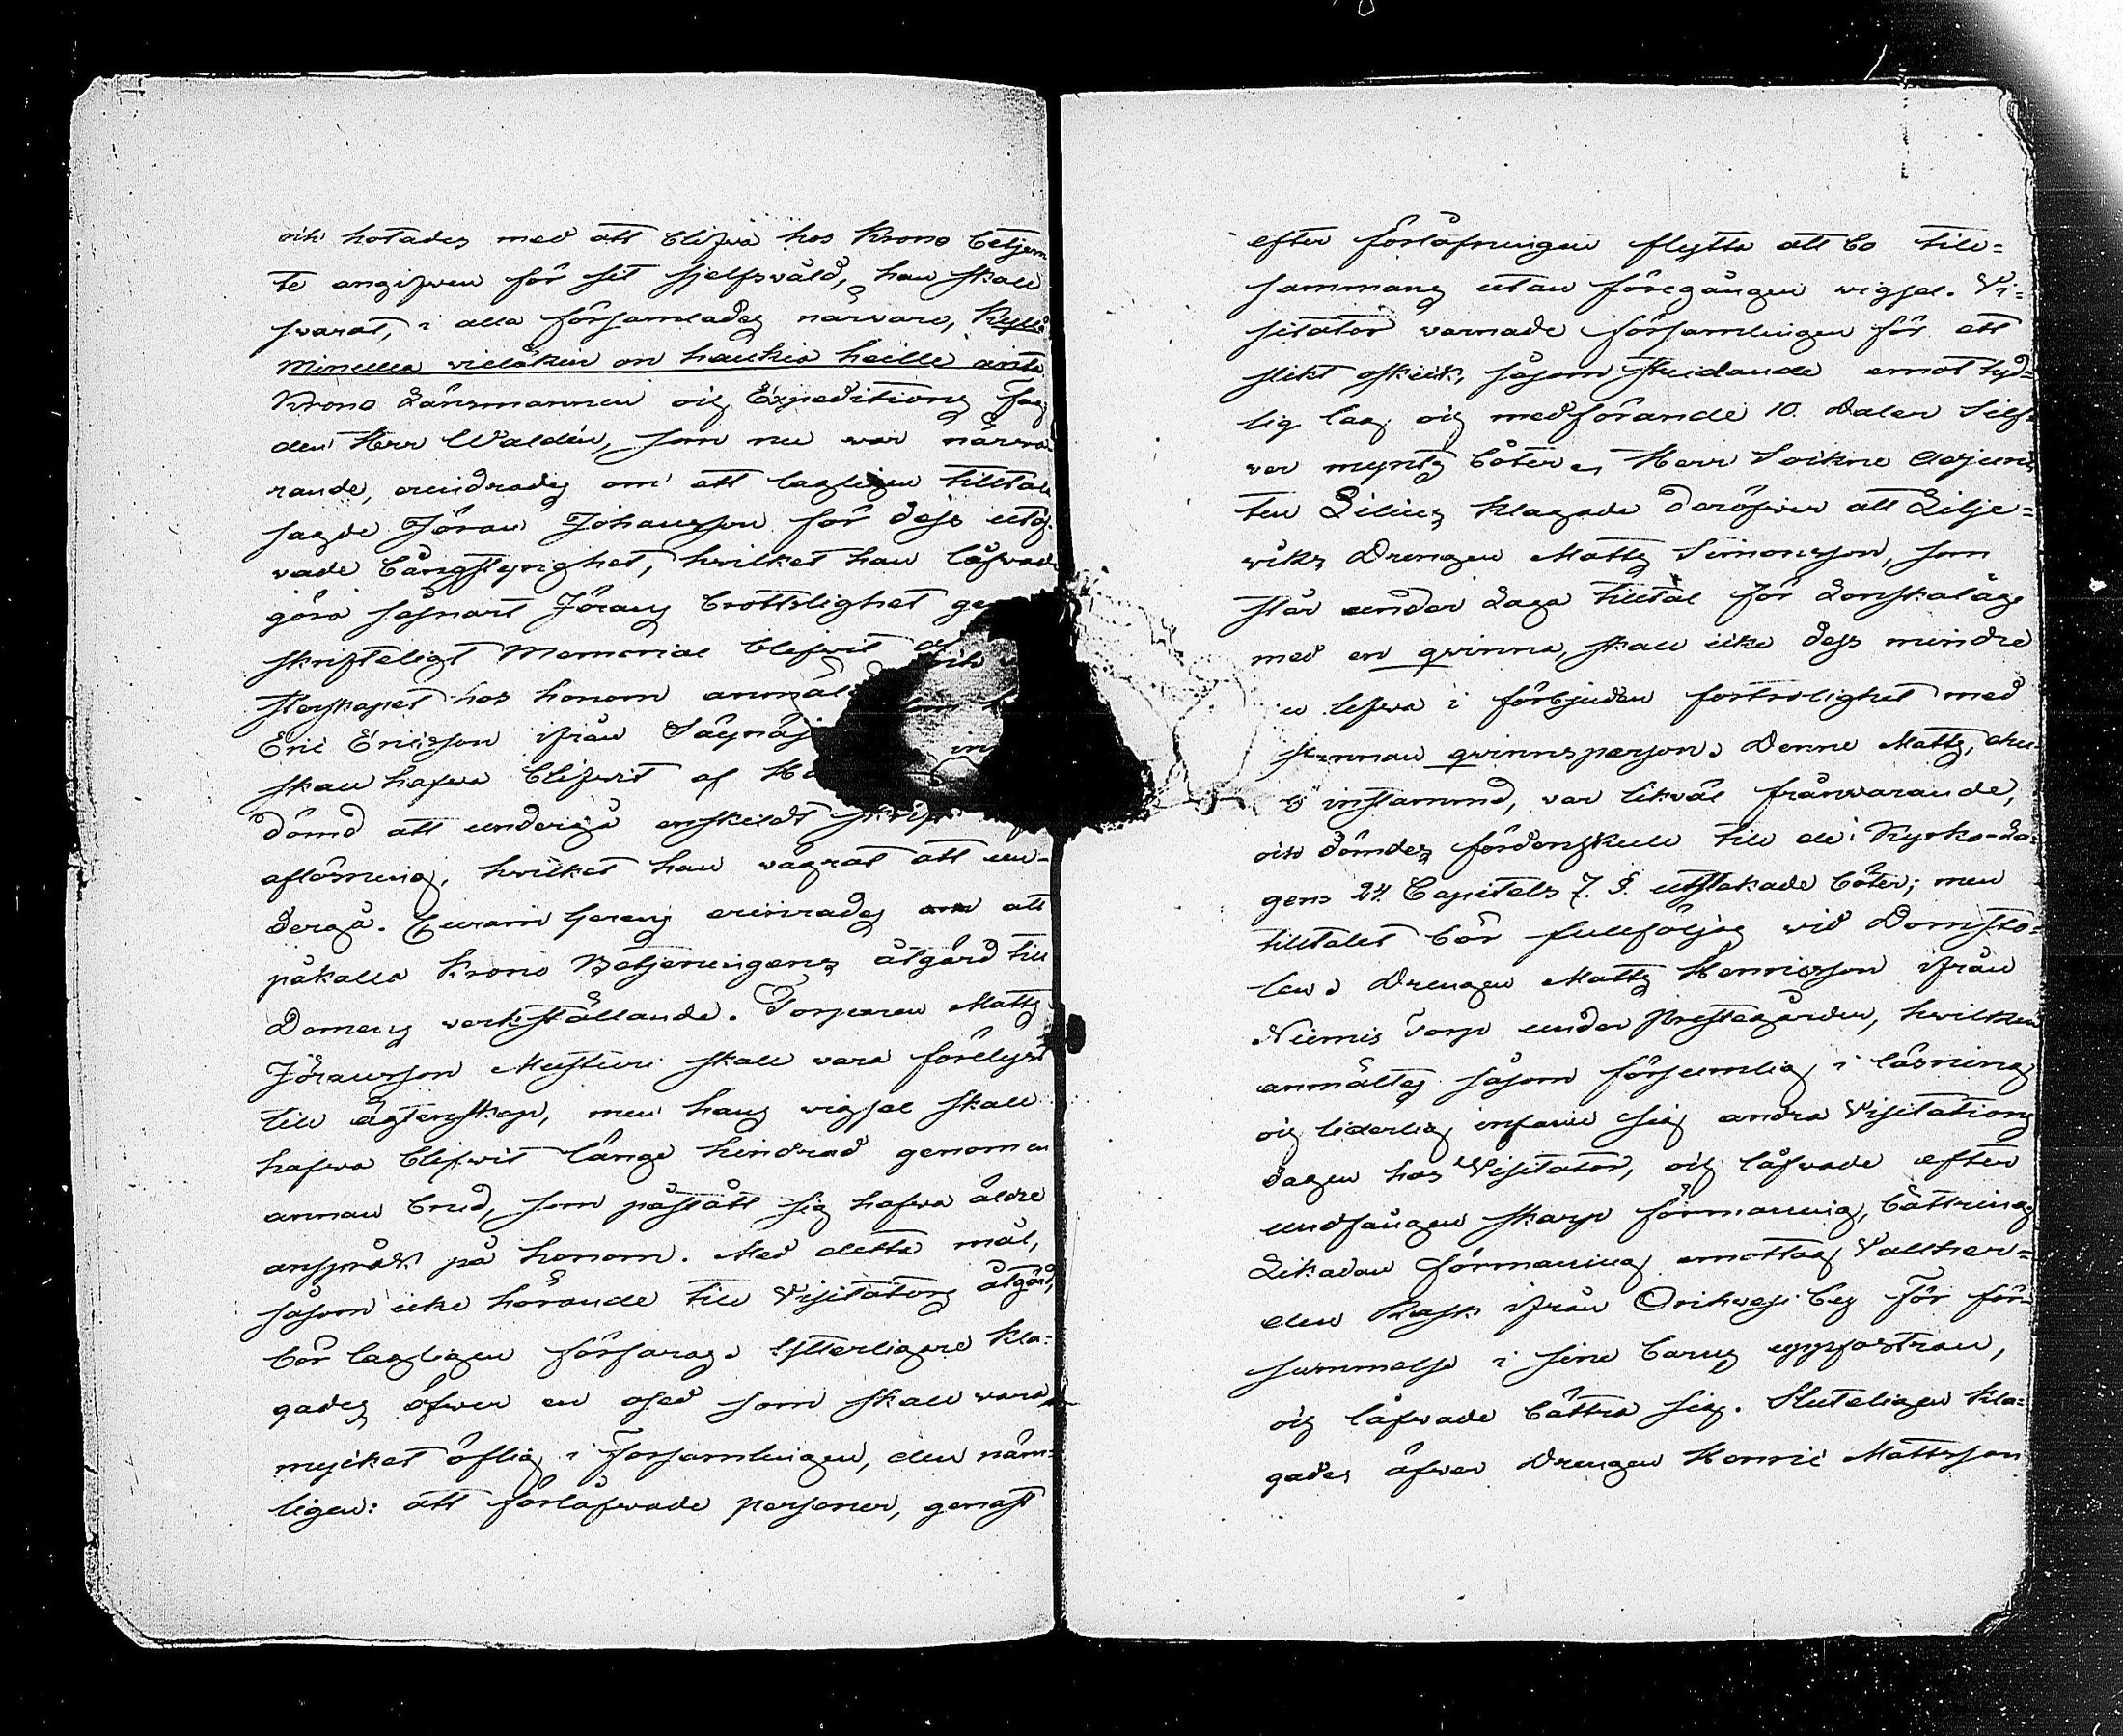 och hotades med att blifwa hos Krono betjen
te angifwen för sit sjelfswåld, han skall
swarat, i alla församlades närvaro, Kyllä
Minulla vieläkin on haukia heille anta
Krono Länsmannen och Expeditions Fog
den Herr Waldén, som nu war närva
rande, omidrades om att lagligen tillta
sagde Jöran Johansson för dess utöf
vade bångstyrighet, hvilket han låfvad
göra såsnart Jörans brottslighet ge
skrifteligt Memorial blefvit
skapet hos honom anmäl
Eric Ericsson ifrån Säynäj
skall hafwa blifwit af
dömd att undergå enskildt skrift
aflösning, hvilket han vägrat att un-
dergå. Curam gerens erinrades om att
påkalla Krono Betjeningens åtgärd till
Domens verkställande. Torparen Matts
Jöransson Musturi skall vara förelyst
till ägtenskap, men hans wigsel skall
hafwa blifwit länge hindrad genom en
annan brud, som påstått sig hafwa äldre
anspråk på honom. Med detta mål,
såsom icke hörande till Visitators åtgärd,
bör lagligen förfaras. Ytterligare kla-
gades öfwer en osed som skall wara
mycket öflig i Församlingen, den näm-
ligen: att förlåfwade personer, genast
efter förlåfningen flytta att bo till-
sammans utan föregången wigsel. Vi-
sitator varnade församlingen för ett
slikt oskick, såsom stridande emot tyd-
lig lag och medförande 10. Daler Silf-
ver mynts böter. Herr Sockne Adjunc
ten Lilius klagade deröfwer att Lilje-
wiks Drengen Matts Simonsson, som
står under Laga tilltal för Lönskaläge
med en qvinna, skall icke dess mindre
lefwa i förbjuden fortrolighet med
samman qvinnsperson. Denne Matts,
instämmd, var likväl frånvarande,
och dömdes fördenskull till de i Kyrko-La-
gens 24. Capitels 7. §. utstakade böter; men
tilltalet bör fullföljas wid Domsto-
len. Drengen Matts Henricsson ifrån
Niemis Torp under Prestegården, hvilken
anmältes såsom försumlig i läsning
och liderlig, infann sig andra Visitations
dagen hos Visitator, och låfvade efter
undfången skarp förmaning, bättring.
Likadan förmaning emottog Vallher-
den Rask ifrån Orihvesi by för för-
summelse i sine barns uppfostran,
och låfvade bättra sig. Sluteligen kla-
gades öfwer Drengen Henric Mattsson